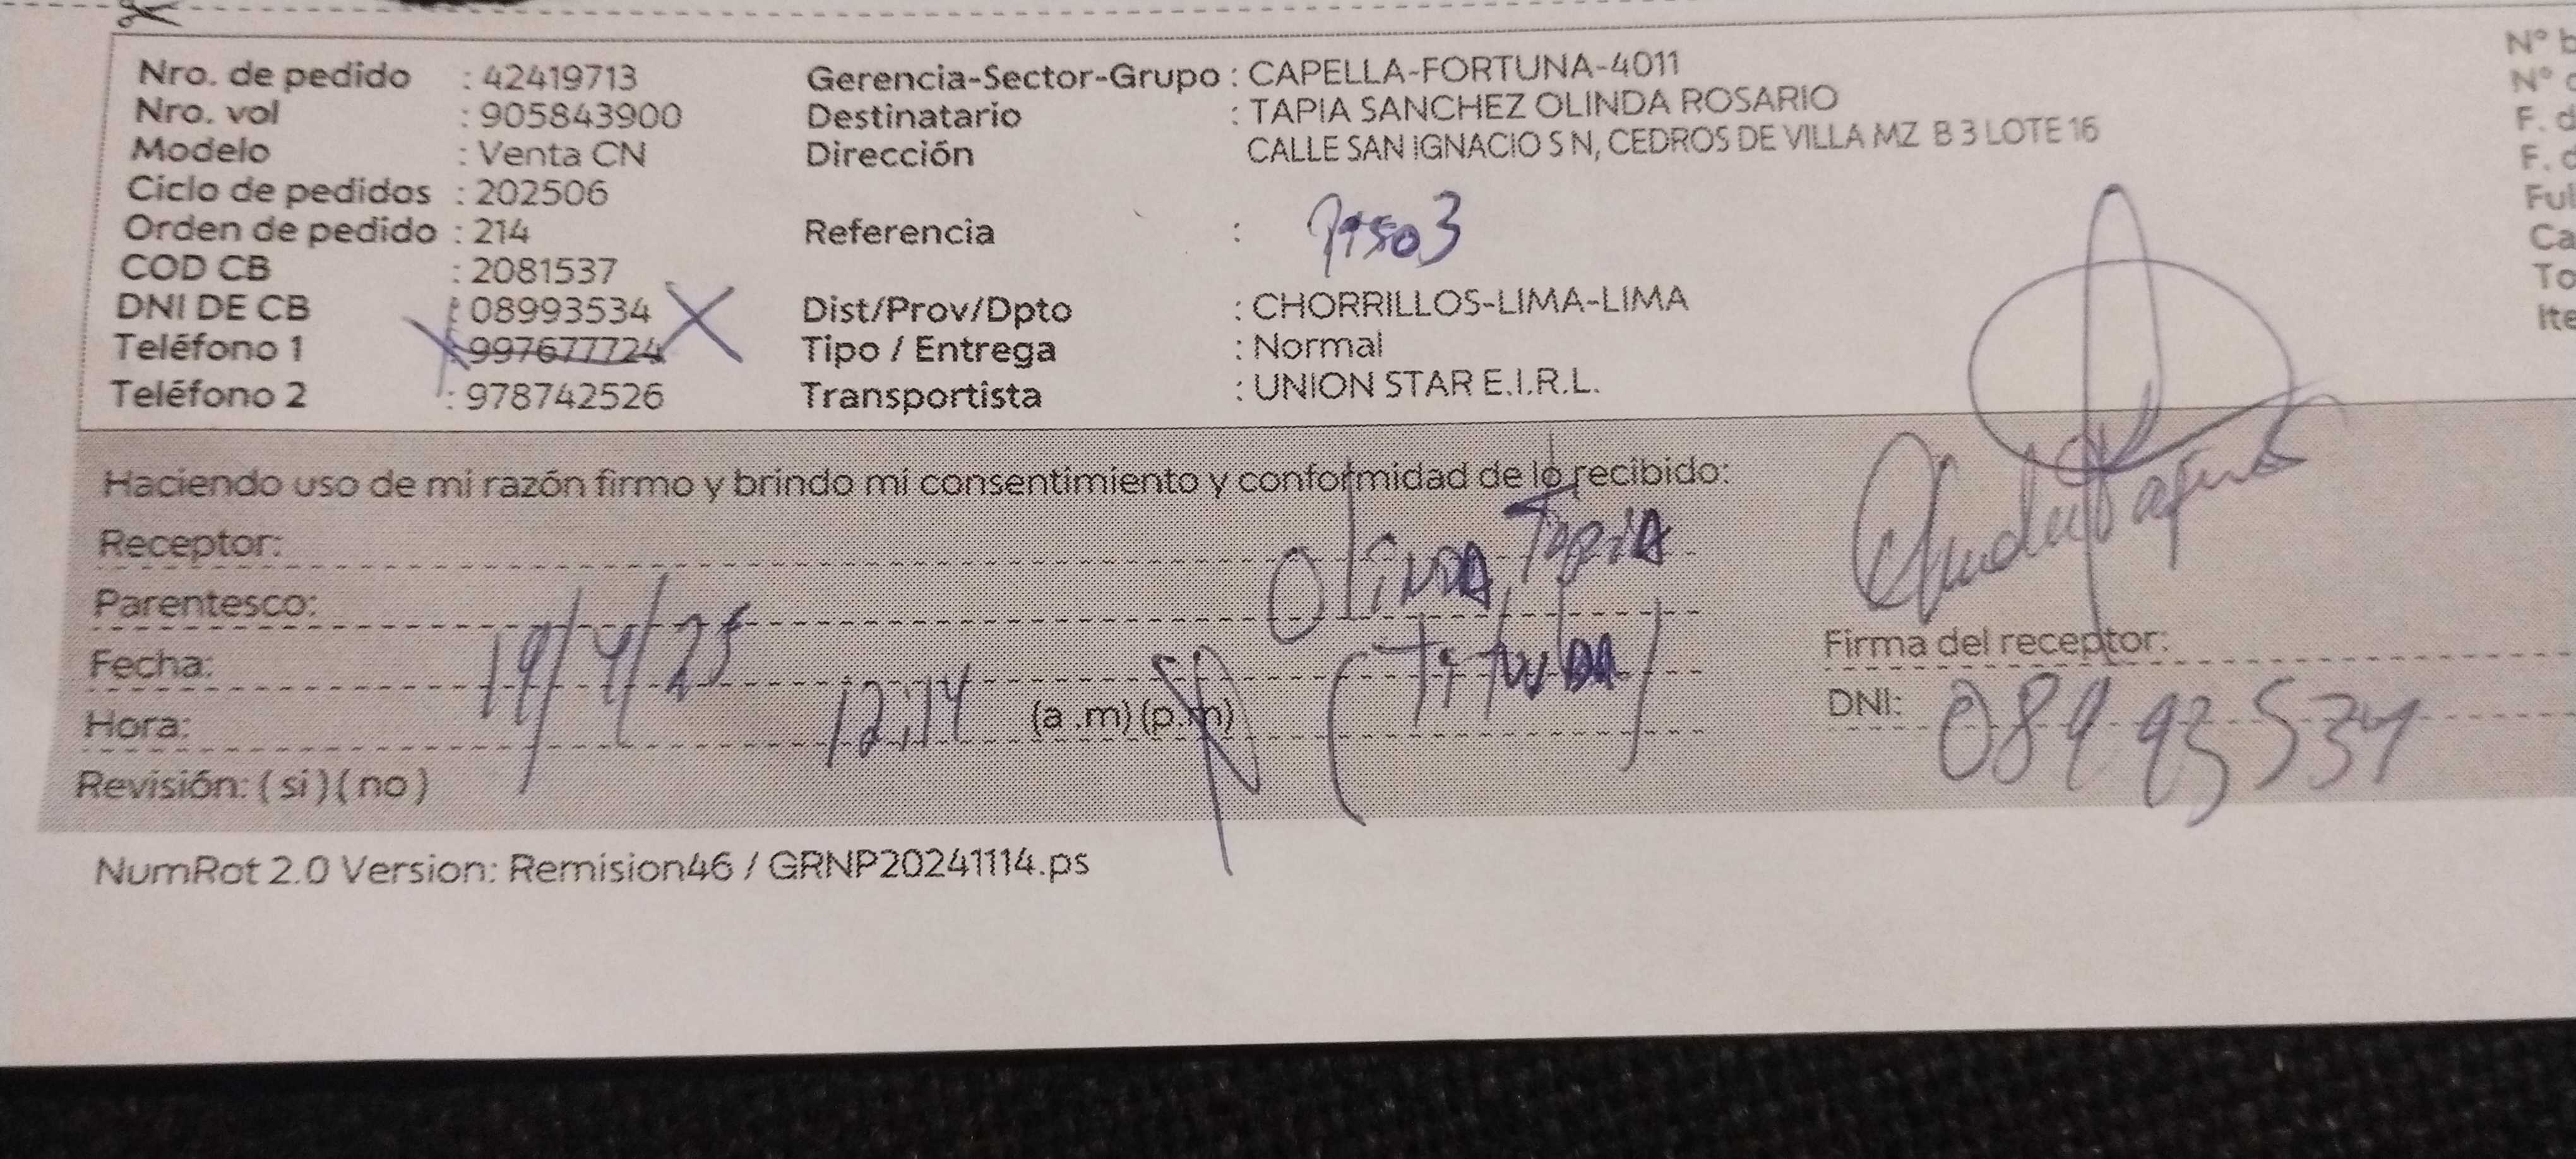 Nro. de pedido : 42419713
Nro. vol : 905843900
Modelo : Venta CN
Ciclo de pedidos : 202506
Orden de pedido : 214
COD CB : 2081537
DNI DE CB : 08993534
Teléfono 1 : 997677724
Teléfono 2 : 978742526
Gerencia-Sector-Grupo : CAPELLA-FORTUNA-4011
Destinatario : TAPIA SANCHEZ OLINDA ROSARIO
Dirección CALLE SAN IGNACIO S N, CEDROS DE VILLA MZ B 3 LOTE 16
Referencia : Piso 3
Dist/Prov/Dpto : CHORRILLOS-LIMA-LIMA
Tipo / Entrega : Normal
Transportista : UNION STAR E.I.R.L.
N° b
N°
F. d
F. d
Ful
Ca
To
Ite
Haciendo uso de mi razón firmo y brindo mi consentimiento y conformidad de lo recibido:
Receptor: Olinda Tapia
Parentesco: (Titular)
Fecha: 19/4/25
Hora: 12:14 (a .m) (p.m)
Revisión: ( si ) ( no )
Firma del receptor:
DNI: 08993534
NumRot 2.0 Version: Remision46 / GRNP20241114.ps